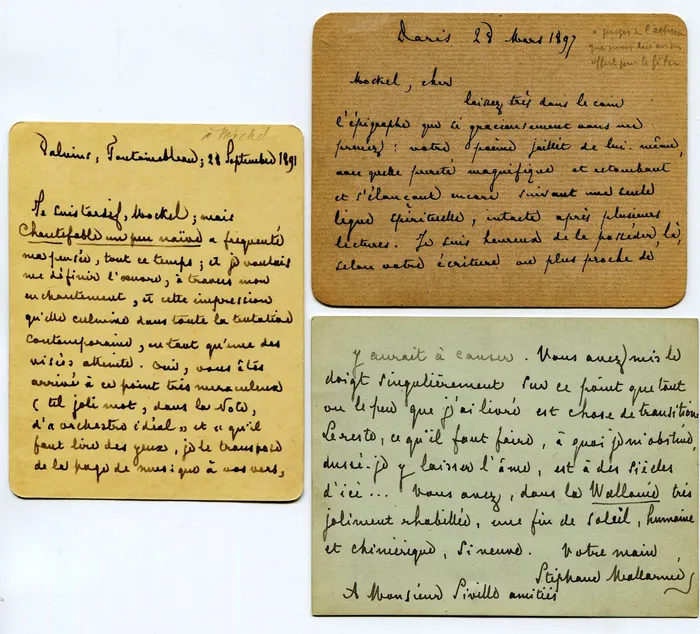 à Mockel
Valvins, Fontainebleau; 28 Septembre 1891
Je suis tardif, Mockel; mais
Chantefable un peu naïve a fréquenté
ma pensée, tout ce temps; et je voulais
me définir l'œuvre, à travers mon
enchantement, et cette impression
qu'elle culmine dans toute la tentation
contemporaine, en tant qu'une des
visées atteinte. Oui, vous êtes
arrivé à ce point très miraculeux
( tel joli mot, dans la Note,
d'« orchestre idéal » et « qu'il
faut lire des yeux, je le transpose
de la page de musique à vos vers,
Paris 28 Mars 1897
à propos de l'album
que nous lui avons
offert pour le fêter
Mockel, cher
laissez très dans le coin
l'épigraphe que si gracieusement vous me
prenez : votre poème jaillit de lui-même,
avec quelle pureté magnifique et retombant
et s'élançant encore suivant une seule
ligne spirituelle, intacte après plusieurs
lectures. Je suis heureux de le posséder, là,
selon votre écriture ou plus proche de
y aurait à causer. Vous avez mis le
doigt singulièrement sur ce point que tout
ou le peu que j'ai livré est chose de transition
Le reste, ce qu'il faut faire, à quoi je m'obstine,
dussé-je y laisser l'âme, est à des siècles
d'ici ... Vous avez, dans la Wallonie très
joliment rhabillée, une fin de soleil, humaine
et chimérique, si neuve. Votre main
Stéphane Mallarmé
A Monsieur Siville amitiés